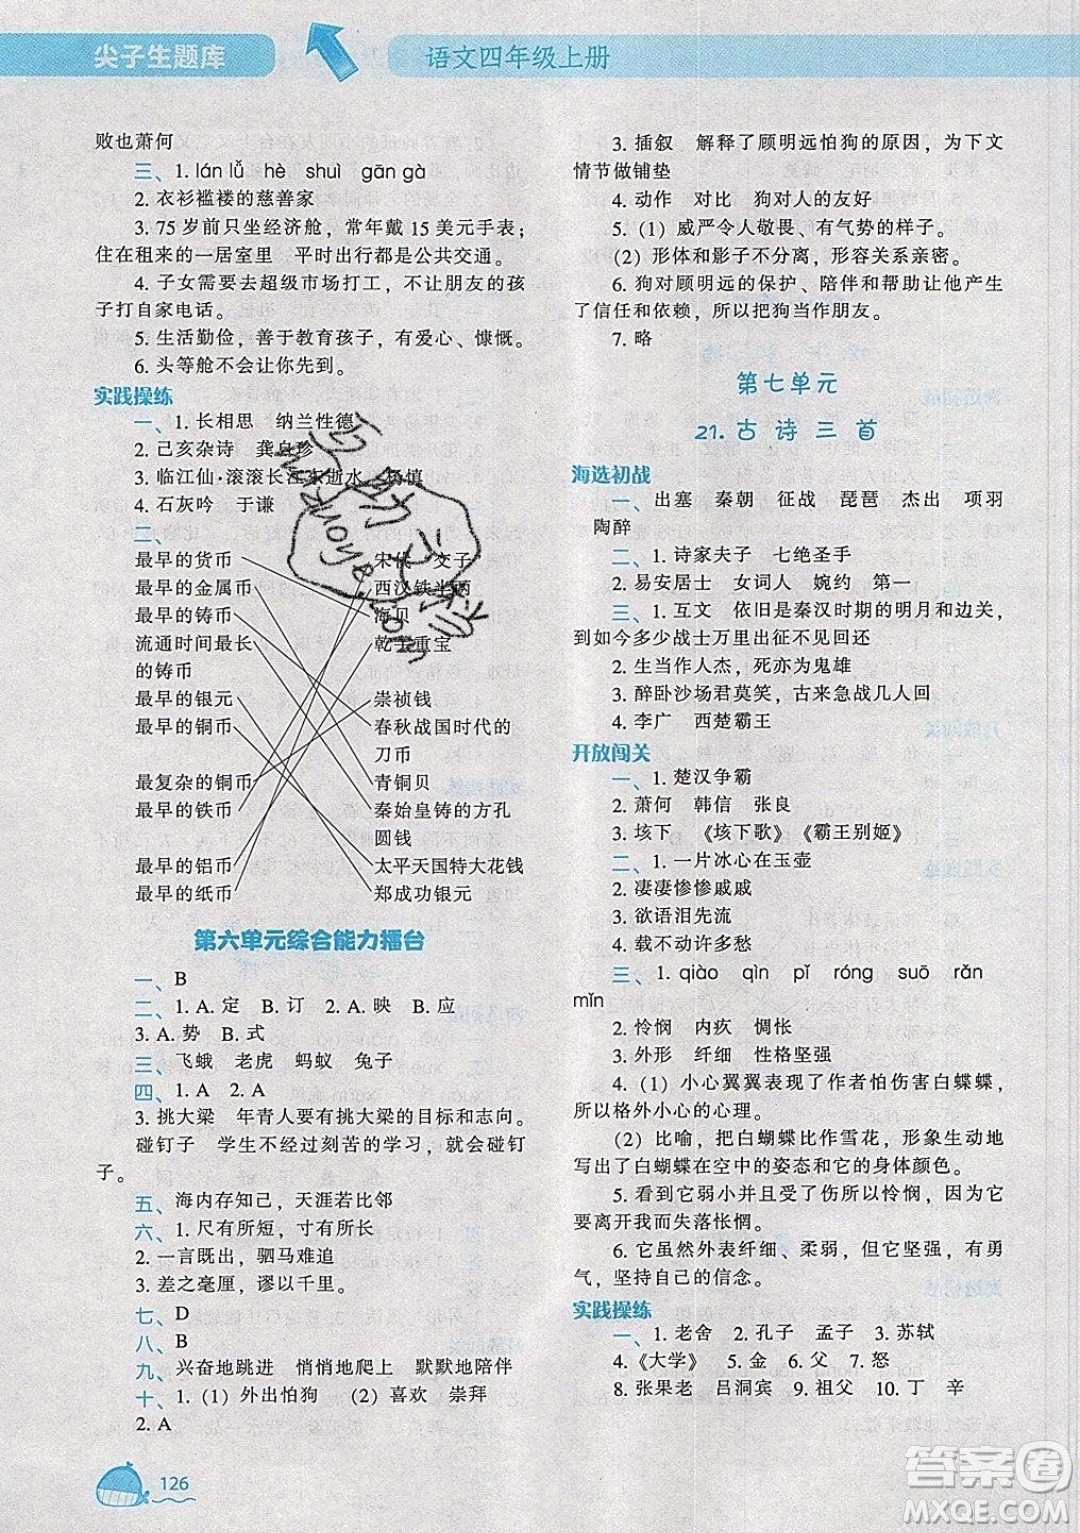 尖子生题库
语文四年级上册
败也萧何
三、1. lán lǚ hè shuì gān gà
2. 衣衫褴褛的慈善家
3. 75 岁前只坐经济舱，常年戴 15 美元手表；
住在租来的一居室里 平时出行都是公共交通。
4. 子女需要去超级市场打工，不让朋友的孩
子打自家电话。
5. 生活勤俭，善于教育孩子，有爱心、慷慨。
6. 头等舱不会让你先到。
实践操练
一、1. 长相思 纳兰性德
2. 己亥杂诗 龚自珍
3. 临江仙·滚滚长江东逝水 杨慎
4. 石灰吟 于谦
二、
最早的货币 宋代 交子
最早的金属币 西汉铁半两
最早的铸币 海贝
流通时间最长 乾封重宝
的铸币
最早的银元 崇祯钱
最早的铜币 春秋战国时代的
刀币
最复杂的铜币 青铜贝
最早的铁币 秦始皇铸的方孔
圆钱
最早的铝币 太平天国特大花钱
最早的纸币 郑成功银元
第六单元综合能力擂台
一、B
二、1. A. 定 B. 订 2. A. 映 B. 应
3. A. 势 B. 式
三、飞蛾 老虎 蚂蚁 兔子
四、1. A 2. A
3. 挑大梁 年青人要有挑大梁的目标和志向。
碰钉子 学生不经过刻苦的学习，就会碰钉
子。
五、海内存知己，天涯若比邻
六、1. 尺有所短，寸有所长
2. 一言既出，驷马难追
3. 差之毫厘，谬以千里。
七、D
八、B
九、兴奋地跳进 悄悄地爬上 默默地陪伴
十、1. (1) 外出怕狗 (2) 喜欢 崇拜
2. A
126
3. 插叙 解释了顾明远怕狗的原因，为下文
情节做铺垫
4. 动作 对比 狗对人的友好
5. (1) 威严令人敬畏、有气势的样子。
(2) 形体和影子不分离，形容关系亲密。
6. 狗对顾明远的保护、陪伴和帮助让他产生
了信任和依赖，所以把狗当作朋友。
7. 略
第七单元
21. 古诗三首
海选初战
一、出塞 秦朝 征战 琵琶 杰出 项羽
陶醉
二、1. 诗家夫子 七绝圣手
2. 易安居士 女词人 婉约 第一
三、1. 互文 依旧是秦汉时期的明月和边关，
到如今多少战士万里出征不见回还
2. 生当作人杰，死亦为鬼雄
3. 醉卧沙场君莫笑，古来征战几人回
4. 李广 西楚霸王
开放闯关
一、1. 楚汉争霸
2. 萧何 韩信 张良
3. 垓下 《垓下歌》《霸王别姬》
二、1. 一片冰心在玉壶
2. 凄凄惨惨戚戚
3. 欲语泪先流
4. 载不动许多愁
三、1. qiào qìn pǐ róng suō rǎn
mǐn
2. 怜悯 内疚 惆怅
3. 外形 纤细 性格坚强
4. (1) 小心翼翼表现了作者怕伤害白蝶蝶，
所以格外小心的心理。
(2) 比喻，把白蝴蝶比作雪花，形象生动地
写出了白蝴蝶在空中的姿态和它的身体颜色。
5. 看到它弱小并受了伤所以怜悯，因为它
要离开我而失落怅惘。
6. 它虽然外表纤细、柔弱，但它坚强，有勇
气，坚持自己的信念。
实践操练
一、1. 老舍 2. 孔子 孟子 3. 苏轼
4.《大学》 5. 金 6. 父 7. 怒
8. 张果老 吕洞宾 9. 祖父 10. 丁 辛
答案圈
MXQE.COM